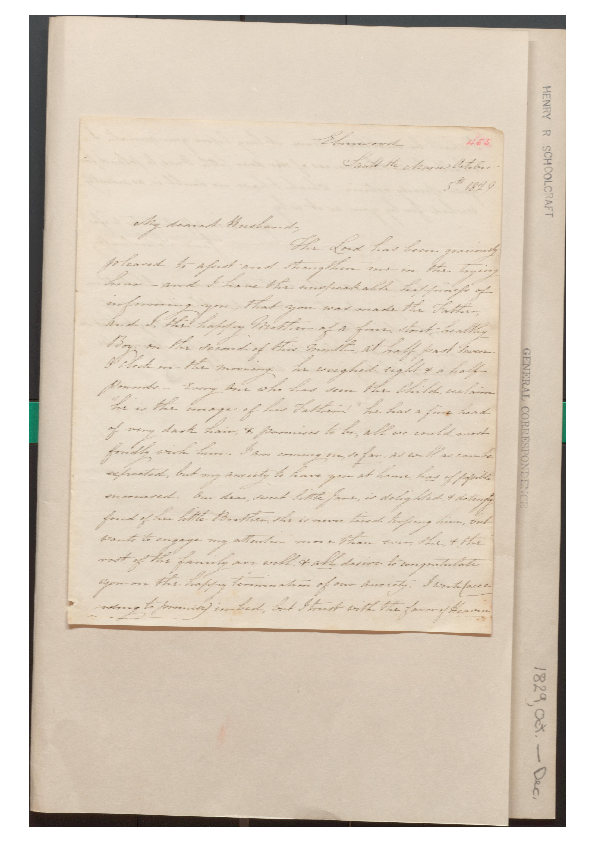 Elmwood
455
Sault Ste Marie October
5th 1829
My dearest Husband,
The Lord has been graciously
pleased to assist and strengthen me in the trying
hour – and I have the unspeakable happiness of
informing you, that you was made the Father,
and I, the happy Mother of a fine, stout, healthy
Boy, on the second of this Month, at half past seven
O'clock in the morning. he weighed eight & a half
pounds – Every One who has seen the Child, exclaim
"he is the image of his Father!" he has a fine head
of very dark hair, & promises to be, all we could most
fondly wish him. I am coming on, so far, as well as can be
expected, but my anxiety to have you at home, has if possible
increased. Our dear, sweet little Jane, is delighted, &
fond of her little Brother, she is never tired kissing him, but
wants to engage my attention more than ever, she, & the
rest of the family are well, & all desire to congratulate
you on the happy termination of our anxiety. I write
to promise) in bed, but I trust with the favor of Heaven
HENRY R SCHOOLCRAFT
GENERAL CORRESPONDENCE
1829, Oct. – Dec.